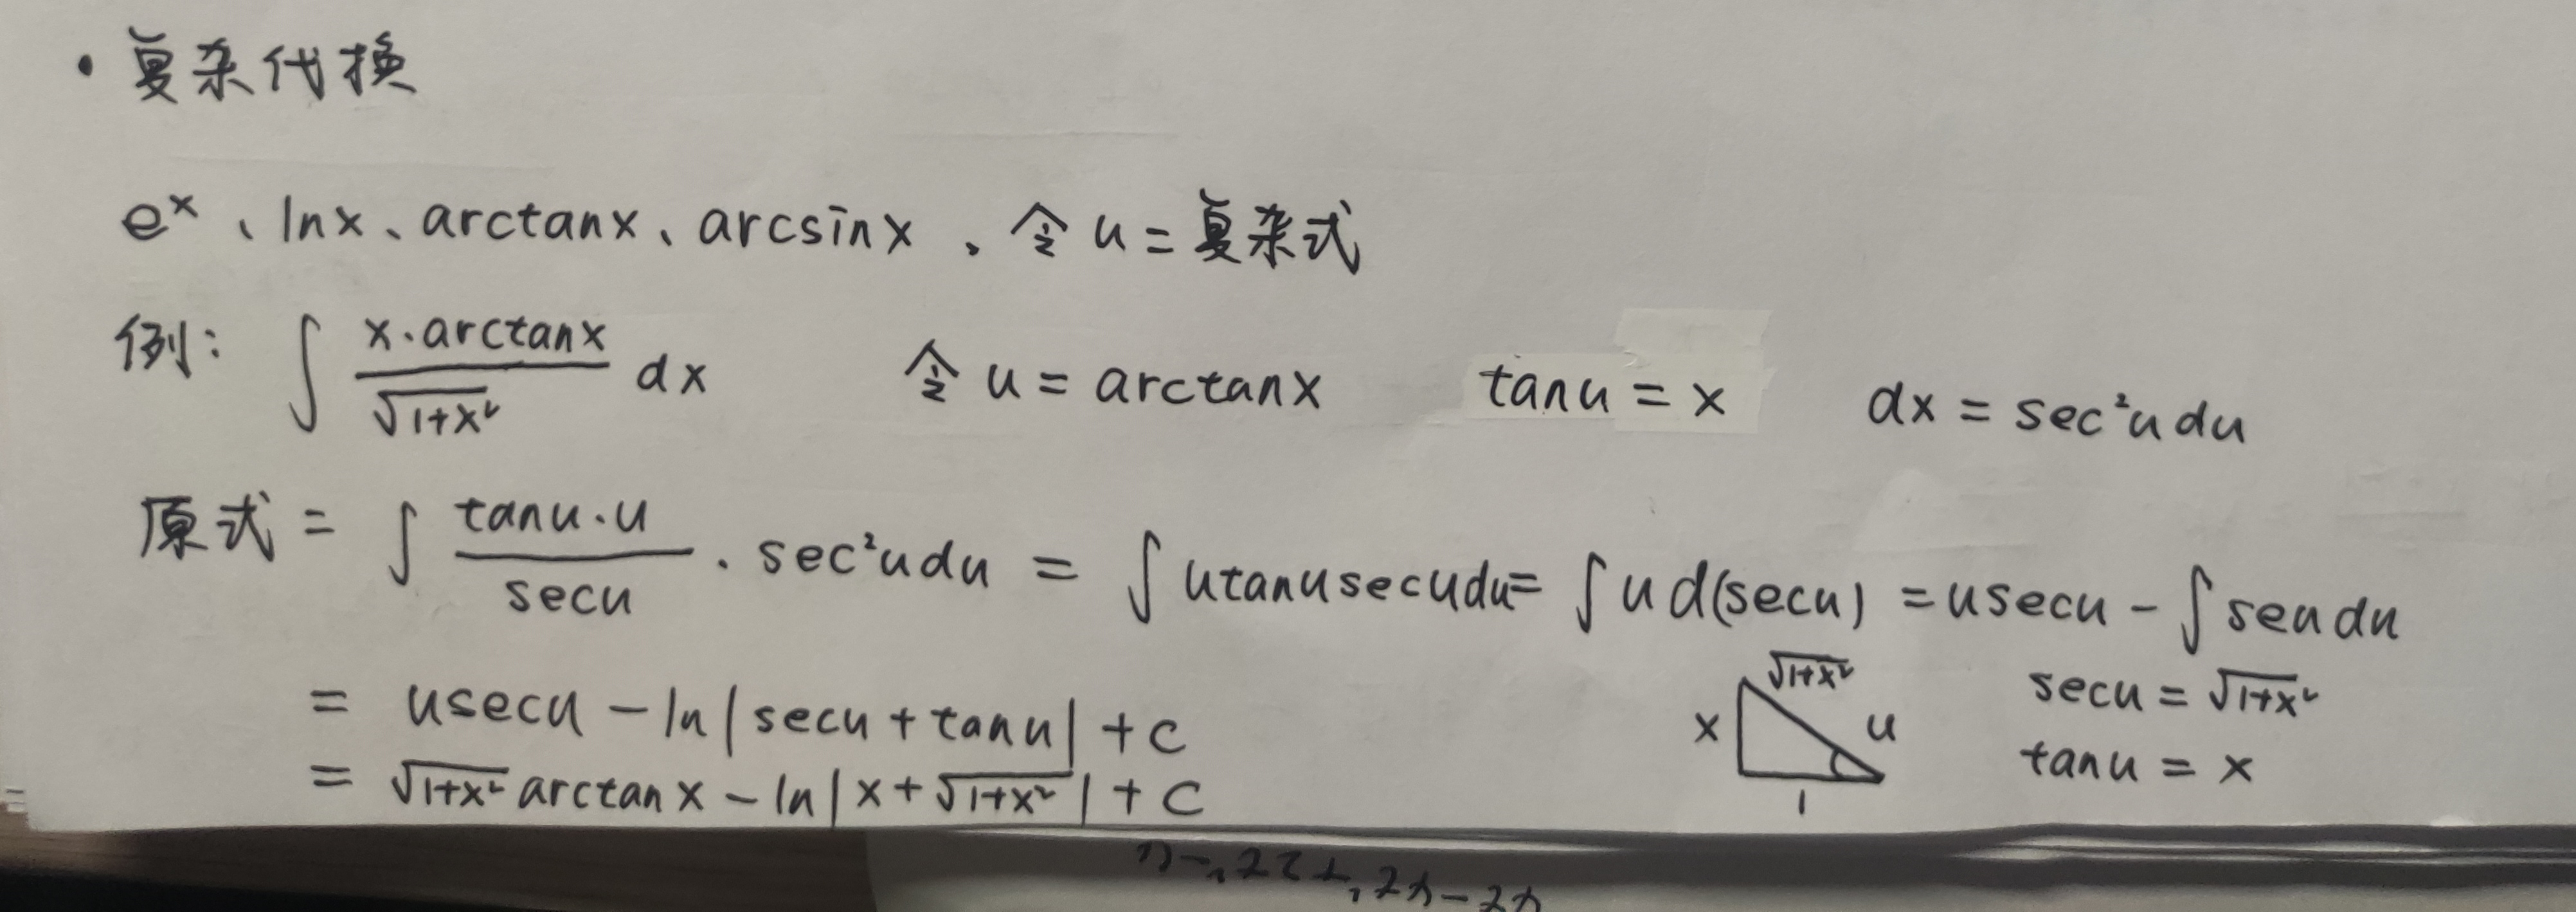 · 复杂代换
eˣ、lnx、arctanx、arcsinx、令 u = 复杂式
例: ∫ x·arctanx / √(1+x²) dx 令 u = arctanx tanu = x dx = sec²u du
原式 = ∫ tanu·u / secu · sec²u du = ∫ u tanu secu du = ∫ u d(secu) = u secu - ∫ seu du
= u secu - ln|secu + tanu| + C
= √(1+x²) arctanx - ln|x + √(1+x²)| + C
√(1+x²)
x u
1
secu = √(1+x²)
tanu = x